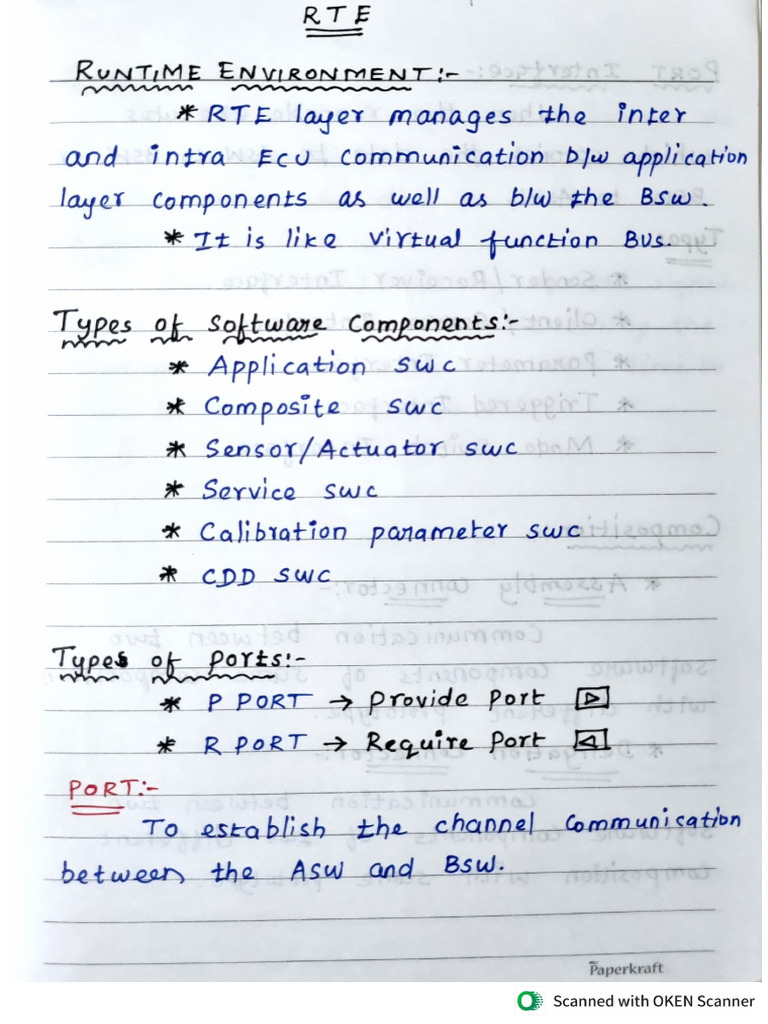 RTE
RUNTIME ENVIRONMENT:-
* RTE layer manages the inter
and intra ECU communication b/w application
layer components as well as b/w the BSW.
* It is like virtual function Bus.
Types of Software Components:-
* Application SWC
* Composite SWC
* Sensor/Actuator SWC
* Service SWC
* Calibration parameter SWC
* CDD SWC
Types of Ports:-
* P PORT → Provide Port ▷
* R PORT → Require Port ◁
PORT:-
To establish the channel communication
between the ASW and BSW.
Paperkraft
Scanned with OKEN Scanner